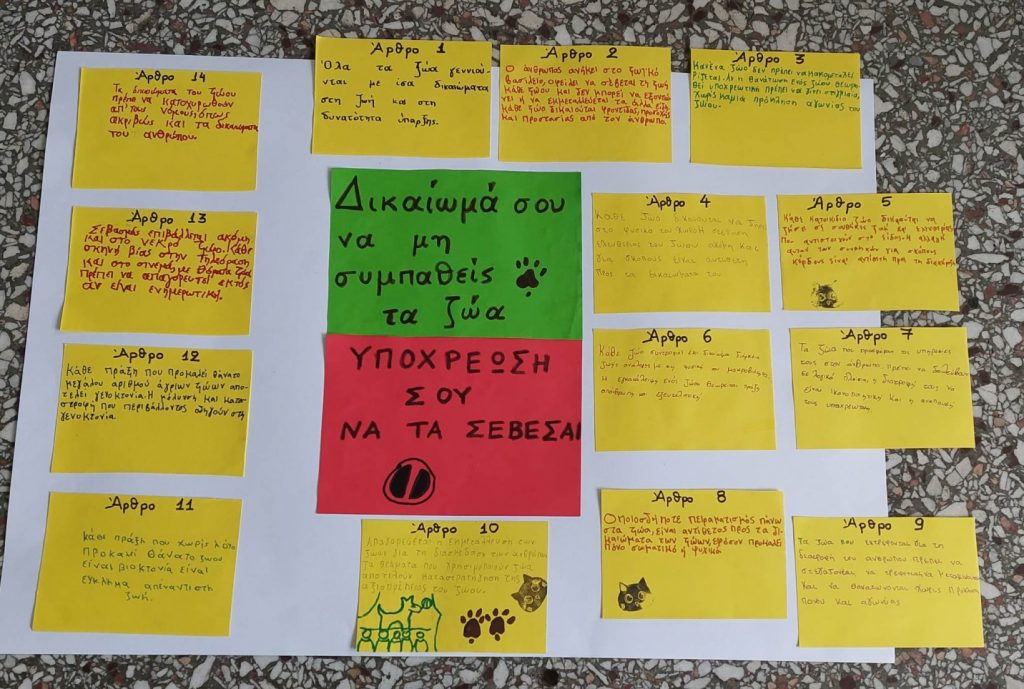 Άρθρο 1
Όλα τα ζώα γεννιού-
νται με ίσα δικαιώματα
στη ζωή και στη
δυνατότητα ύπαρξης.
Άρθρο 2
Ο άνθρωπος ανήκει στο ζωικό
βασίλειο, οφείλει να σέβεται τη ζωή
κάθε ζώου και δεν μπορεί να εξοντώ-
νει ή να εκμεταλλεύεται τα άλλα είδη.
κάθε ζώο δικαιούται φροντίδας, προσοχής
και προστασίας από τον άνθρωπο.
Άρθρο 3
Κανένα ζώο δεν πρέπει να κακομεταχει-
ρίζεται. Αν η θανάτωση ενός ζώου θεωρη-
θεί υποχρεωτική πρέπει να γίνει στιγμιαία,
χωρίς καμιά πρόκληση αγωνίας του
ζώου.
Άρθρο 4
Κάθε ζώο δικαιούται να ζήσει
στο φυσικό του χώρο. Η στέρηση
ελευθερίας του ζώου ακόμη και
για σκοπούς είναι αντίθετη
προς τα δικαιώματά του
Άρθρο 5
Κάθε κατοικίδιο ζώο δικαιούται να
ζήσει σε συνθήκες ζωής και ελευθερίας
που αντιστοιχούν στο είδος. Η αλλαγή
αυτών των συνθηκών για σκοπούς
κέρδους είναι αντίθετη προς τη διακήρυξη
Άρθρο 6
Κάθε ζώο συντροφιάς έχει δικαίωμα διάρκεια
ζωής ανάλογη με τη φυσική του μακροβιότητα
Η εγκατάλειψη ενός ζώου θεωρείται πράξη
απάνθρωπη και εξευτελιστική
Άρθρο 7
Τα ζώα που προσφέρουν τις υπηρεσίες
τους στον άνθρωπο πρέπει να δουλεύουν
σε λογικά πλαίσια, η διατροφή τους να
είναι ικανοποιητική και η ανάπαυσή
τους υποχρεωτική
Άρθρο 8
Οποιοσδήποτε πειραματισμός πάνω
στα ζώα, είναι αντίθετος προς τα δι-
καιώματα των ζώων, εφόσον προκαλεί
πόνο σωματικό ή ψυχικό
Άρθρο 9
Τα ζώα που εκτρέφονται για τη
διατροφή του ανθρώπου πρέπει να
στεγάζονται να τρέφονται να μεταφέρονται
και να θανατώνονται χωρίς πρόκληση
πόνου και αγωνίας
Άρθρο 10
Απαγορεύεται η εκμετάλλευση των
ζώων για τη διασκέδαση των ανθρώπων
Τα θεάματα που χρησιμοποιούν ζώα
αποτελούν καταστρατήγηση της
αξιοπρέπειας του ζώου.
Άρθρο 11
κάθε πράξη που χωρίς λόγο
προκαλεί θάνατο ζώου
είναι βιοκτονία. Είναι
έγκλημα απέναντι στη
ζωή.
Άρθρο 12
Κάθε πράξη που προκαλεί θάνατο
μεγάλου αριθμού άγριων ζώων απο-
τελεί γενοκτονία. Η μόλυνση και κατα-
στροφή του περιβάλλοντος οδηγούν στη
γενοκτονία.
Άρθρο 13
Σεβασμός επιβάλλεται ακόμη
και στο νεκρό ζώο. Κάθε
σκηνή βίας στην Τηλεόραση
και στο σινεμά, με θύματα ζώα
πρέπει να απαγορευτεί εκτός
αν είναι ενημερωτική.
Άρθρο 14
Τα δικαιώματα του ζώου
πρέπει να κατοχυρωθούν
απ'τους νόμους, όπως
ακριβώς και τα δικαιώματα
του ανθρώπου.
Δικαίωμά σου
να μη
συμπαθείς
τα ζώα
ΥΠΟΧΡΕΩΣΗ
ΣΟΥ
ΝΑ ΤΑ ΣΕΒΕΣΑΙ